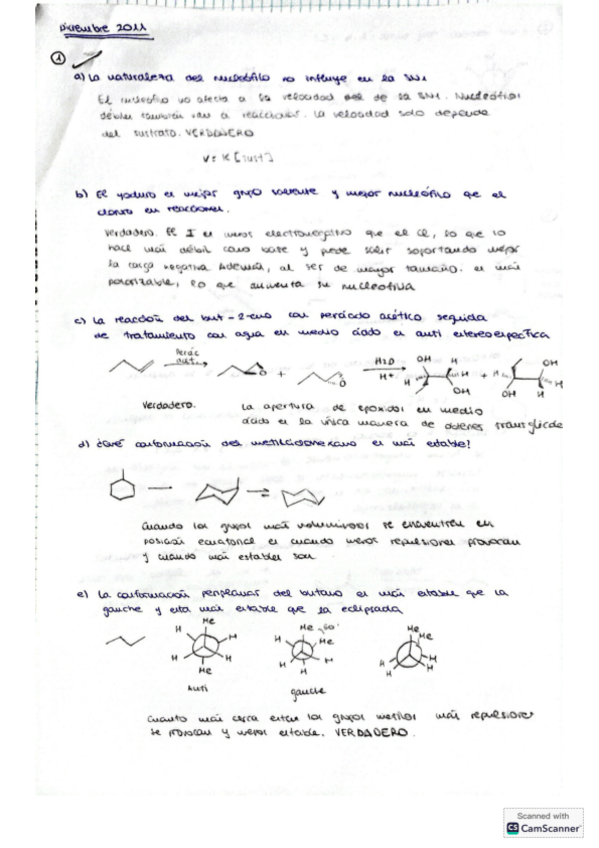 Diciembre 2011
1
a) La naturaleza del nucleófilo no influye en la SN1
El nucleófilo no afecta a la velocidad de la SN1. Nucleófilos
débiles también van a reaccionar. La velocidad solo depende
del sustrato. VERDADERO
V = K [sust]
b) El yoduro es mejor grupo saliente y mejor nucleófilo que el
cloruro en reacciones.
Verdadero. El I es menos electronegativo que el Cl, lo que lo
hace más débil como base y puede salir soportando mejor
la carga negativa. Además, al ser de mayor tamaño. es más
polarizable, lo que aumenta su nucleofilia
c) La reacción del but-2-eno con perácido acético seguida
de tratamiento con agua en medio ácido es anti estereoespecífica
Perác
acét.
O + O
H2O
H+
OH H H OH + OH OH H H
Verdadero. La apertura de epóxidos en medio
ácido es la única manera de obtener transglicoles
d) ¿Qué conformación del metilciclohexano es más estable?
Cuando los grupos más voluminosos se encuentren en
posición ecuatorial es cuando menos repulsiones provocan
y cuando más estables son
e) La conformación periplanar del butano es más estable que la
gauche y esta más estable que la eclipsada
Me H H H H Me
Anti
Me 60° Me H H H H
gauche
Me Me H H H
Cuanto más cerca estén los grupos metilos más repulsiones
se provocan y menos estable. VERDADERO.
Scanned with
CS CamScanner